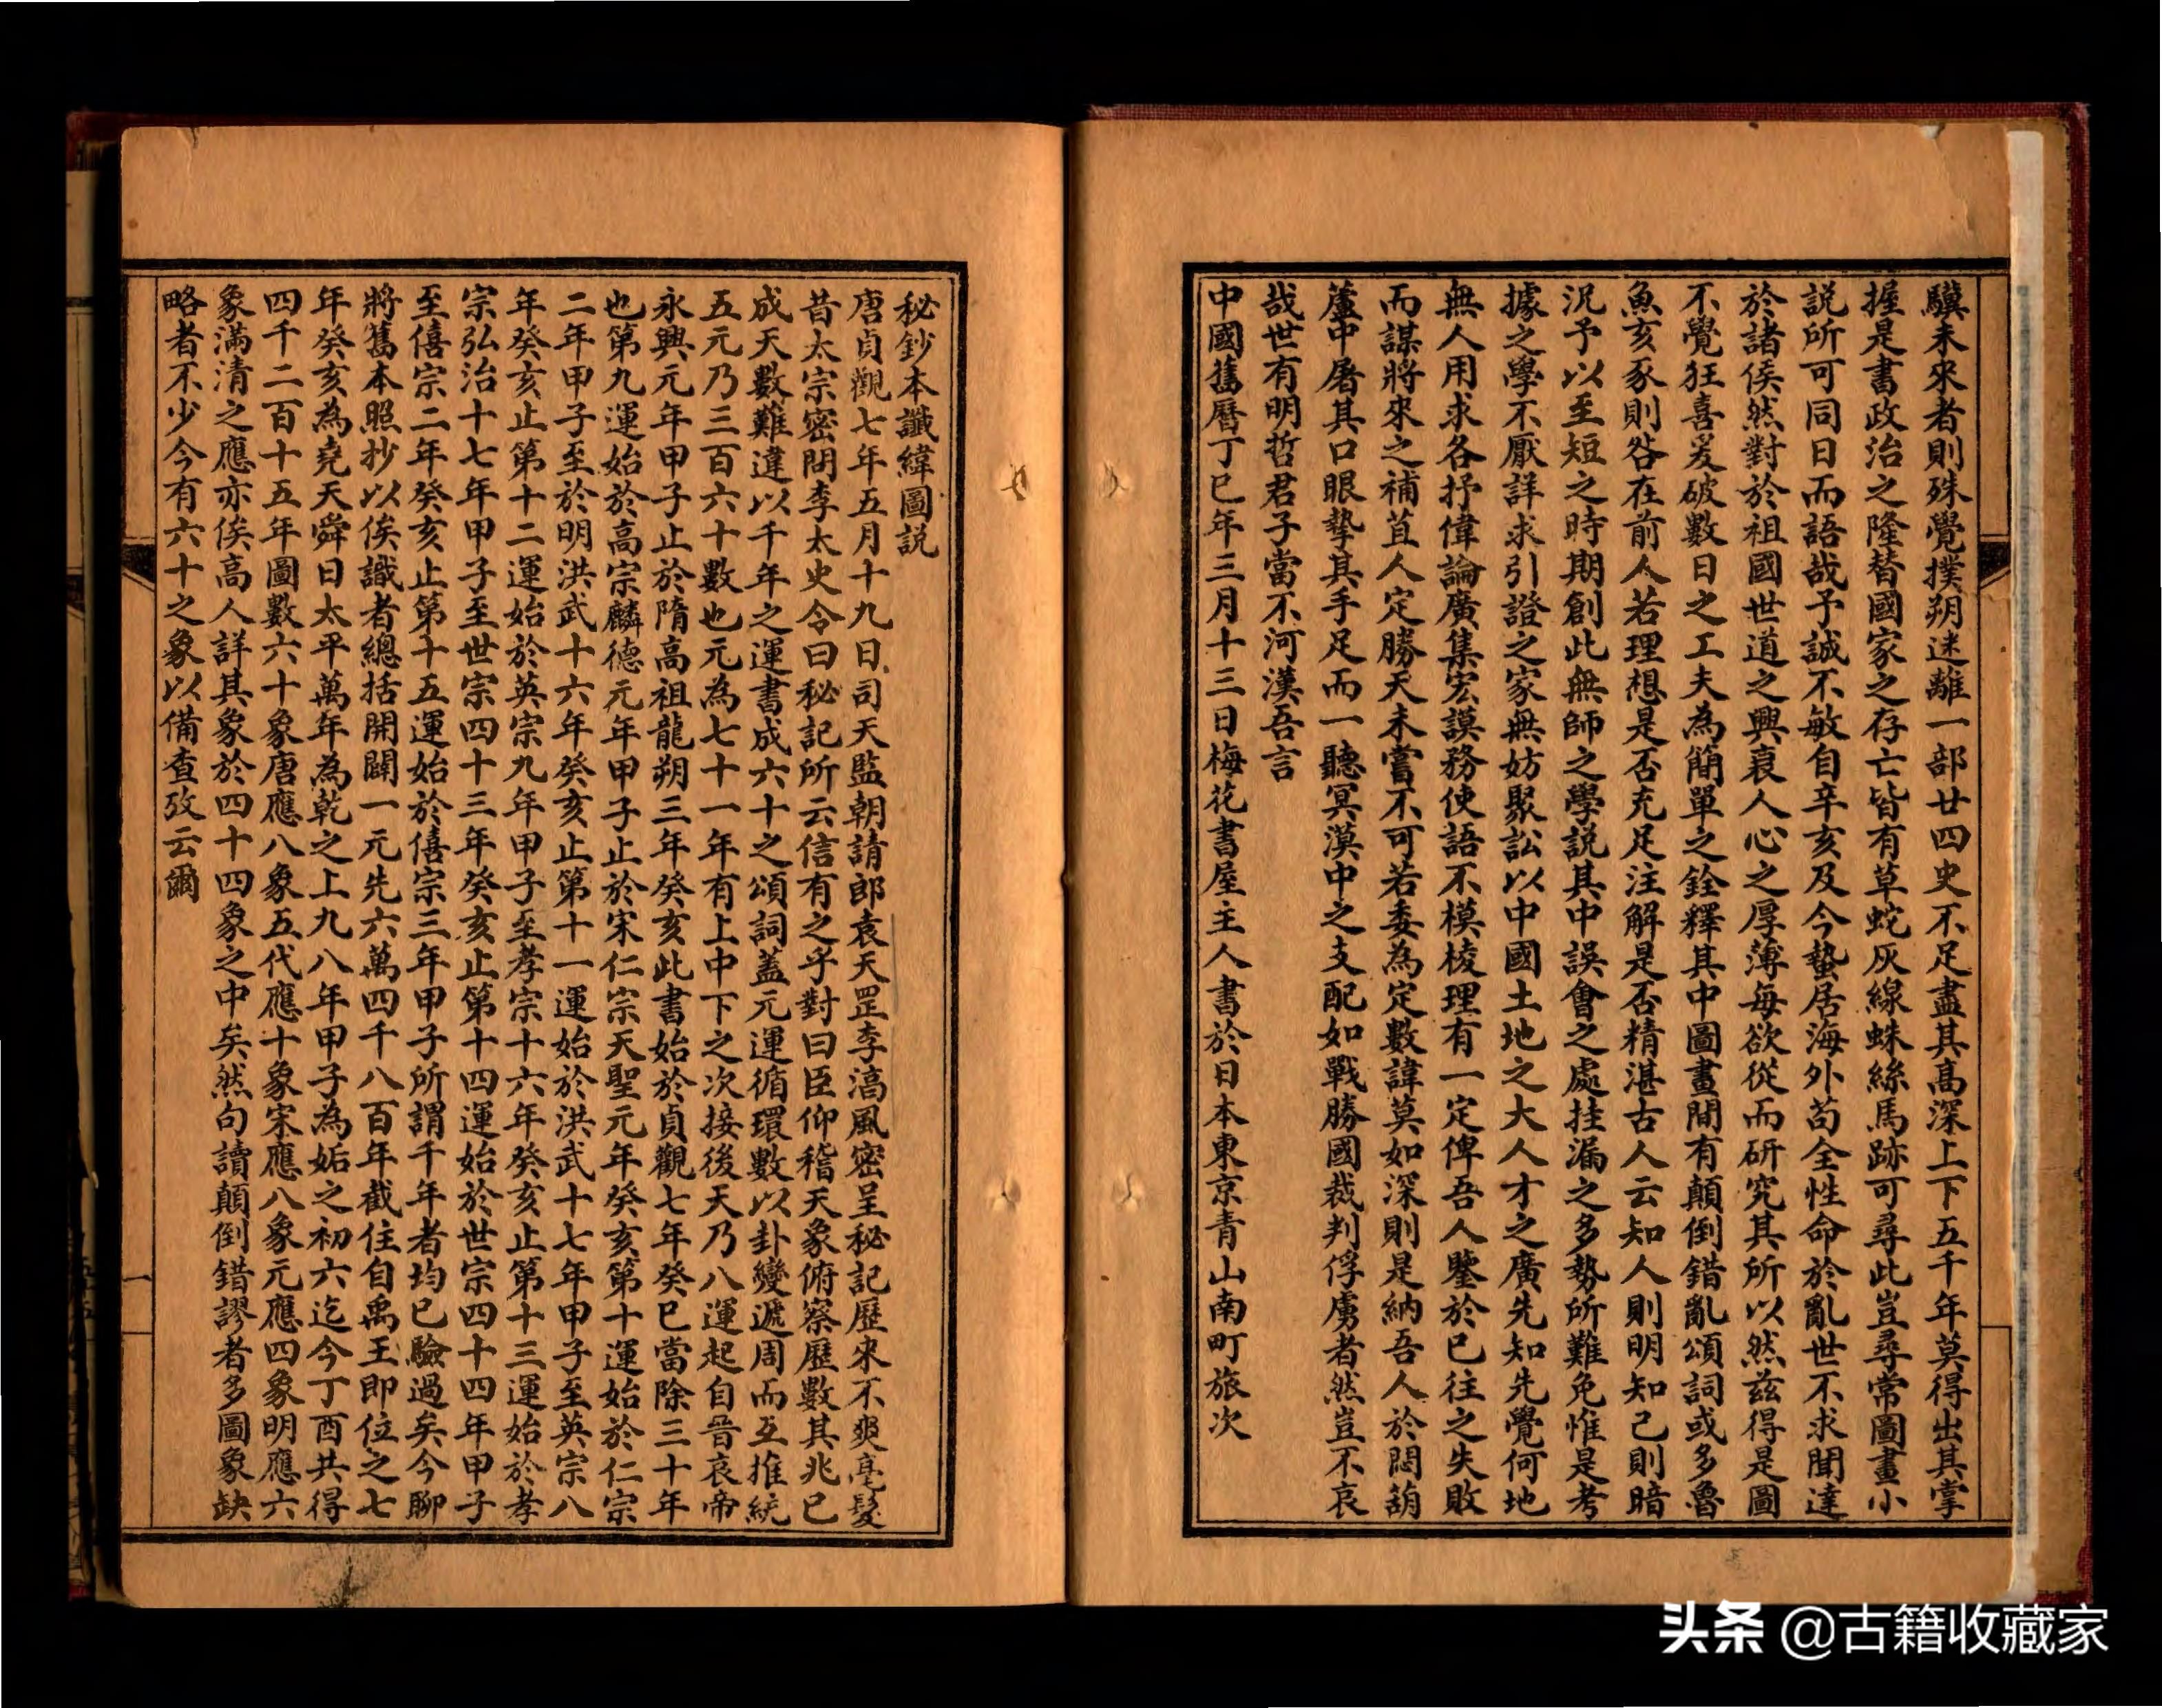 驥未來者則殊覺撲朔迷離一部廿四史不足盡其高深上下五千年莫得出其掌
握是書政治之隆替國家之存亡皆有草蛇灰線蛛絲馬跡可尋此豈尋常圖畫小
説所可同日而語哉予誠不敏自辛亥及今蟄居海外苟全性命於亂世不求聞達
於諸侯然對於祖國世道之興衰人心之厚薄每欲從而研究其所以然兹得是圖
不覺狂喜爰破數日之工夫為簡單之銓釋其中圖畫間有顛倒錯亂頌詞或多魯
魚亥豕則咎在前人若理想是否充足注解是否精湛古人云知人則明知己則暗
況予以至短之時期創此無師之學説其中誤會之處挂漏之多勢所難免惟是考
據之學不厭詳求引證之家無妨聚訟以中國土地之大人才之廣先知先覺何地
無人用求各抒偉論廣集宏謨務使語不模棱理有一定俾吾人鑒於已往之失敗
而謀將來之補苴人定勝天未嘗不可若委為定數諱莫如深則是納吾人於悶葫
蘆中屠其口眼摯其手足而一聽冥漠中之支配如戰勝國裁判俘虜者然豈不哀
哉世有明哲君子當不河漢吾言
中國舊曆丁巳年三月十三日梅花書屋主人書於日本東京青山南町旅次
秘鈔本讖緯圖説
唐貞觀七年五月十九日司天監朝請郎袁天罡李淳風密呈秘記歷來不爽毫髮
昔太宗密問李太史令曰秘記所云信有之乎對曰臣仰稽天象俯察歷數其兆已
成天數難違以千年之運書成六十之頌詞蓋元運循環數以卦變遞周而互推統
五元乃三百六十數也元為七十一年有上中下之次接後天乃八運起自晉哀帝
永興元年甲子止於隋高祖龍朔三年癸亥此書始於貞觀七年癸巳當除三十年
也第九運始於高宗麟德元年甲子止於宋仁宗天聖元年癸亥第十運始於仁宗
二年甲子至於明洪武十六年癸亥止第十一運始於洪武十七年甲子至英宗八
年癸亥止第十二運始於英宗九年甲子至孝宗十六年癸亥止第十三運始於孝
宗弘治十七年甲子至世宗四十三年癸亥止第十四運始於世宗四十四年甲子
至僖宗二年癸亥止第十五運始於僖宗三年甲子所謂千年者均已驗過矣今聊
將舊本照抄以俟識者總括開闢一元先六萬四千八百年截住自禹王即位之七
年癸亥為堯天舜日太平萬年為乾之上九八年甲子為姤之初六迄今丁酉共得
四千二百十五年圖數六十象唐應八象五代應十象宋應八象元應四象明應六
象滿清之應亦俟高人詳其象於四十四象之中矣然句讀顛倒錯謬者多圖象缺
略者不少今有六十之象以備查攷云爾
一
头条 @古籍收藏家